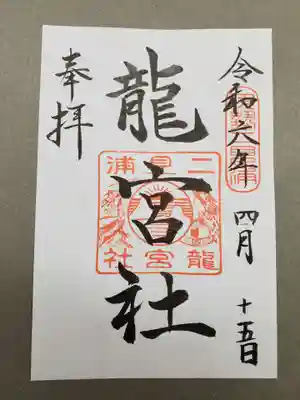 令和六年 四月 十五日
龍宮社
奉拝
二見浦
龍宮社